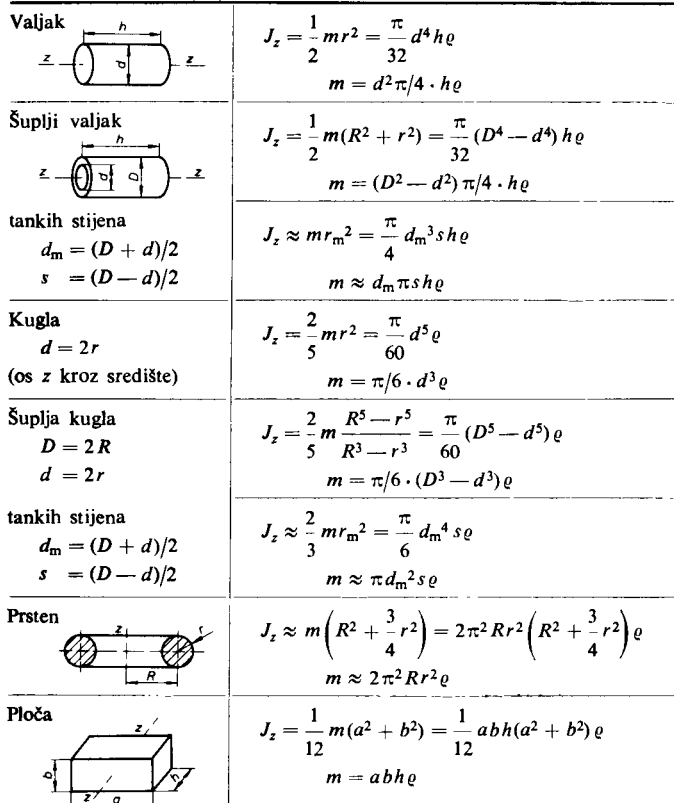 Valjak
h
z
d
z
J_z = 1/2 mr² = π/32 d⁴hϱ
m = d²π/4 · hϱ
Šuplji valjak
h
z
d
D
z
J_z = 1/2 m(R² + r²) = π/32 (D⁴ — d⁴) hϱ
m = (D² — d²) π/4 · hϱ
tankih stijena
d_m = (D + d)/2
s = (D — d)/2
J_z ≈ mr_m² = π/4 d_m³ shϱ
m ≈ d_m πshϱ
Kugla
d = 2r
(os z kroz središte)
J_z = 2/5 mr² = π/60 d⁵ ϱ
m = π/6 · d³ ϱ
Šuplja kugla
D = 2R
d = 2r
J_z = 2/5 m (R⁵ — r⁵)/(R³ — r³) = π/60 (D⁵ — d⁵) ϱ
m = π/6 · (D³ — d³) ϱ
tankih stijena
d_m = (D + d)/2
s = (D — d)/2
J_z ≈ 2/3 mr_m² = π/6 d_m⁴ sϱ
m ≈ πd_m² sϱ
Prsten
z
r
R
J_z ≈ m(R² + 3/4 r²) = 2π² Rr² (R² + 3/4 r²) ϱ
m ≈ 2π² Rr² ϱ
Ploča
z
b
h
z
a
J_z = 1/12 m(a² + b²) = 1/12 abh(a² + b²) ϱ
m = abhϱ